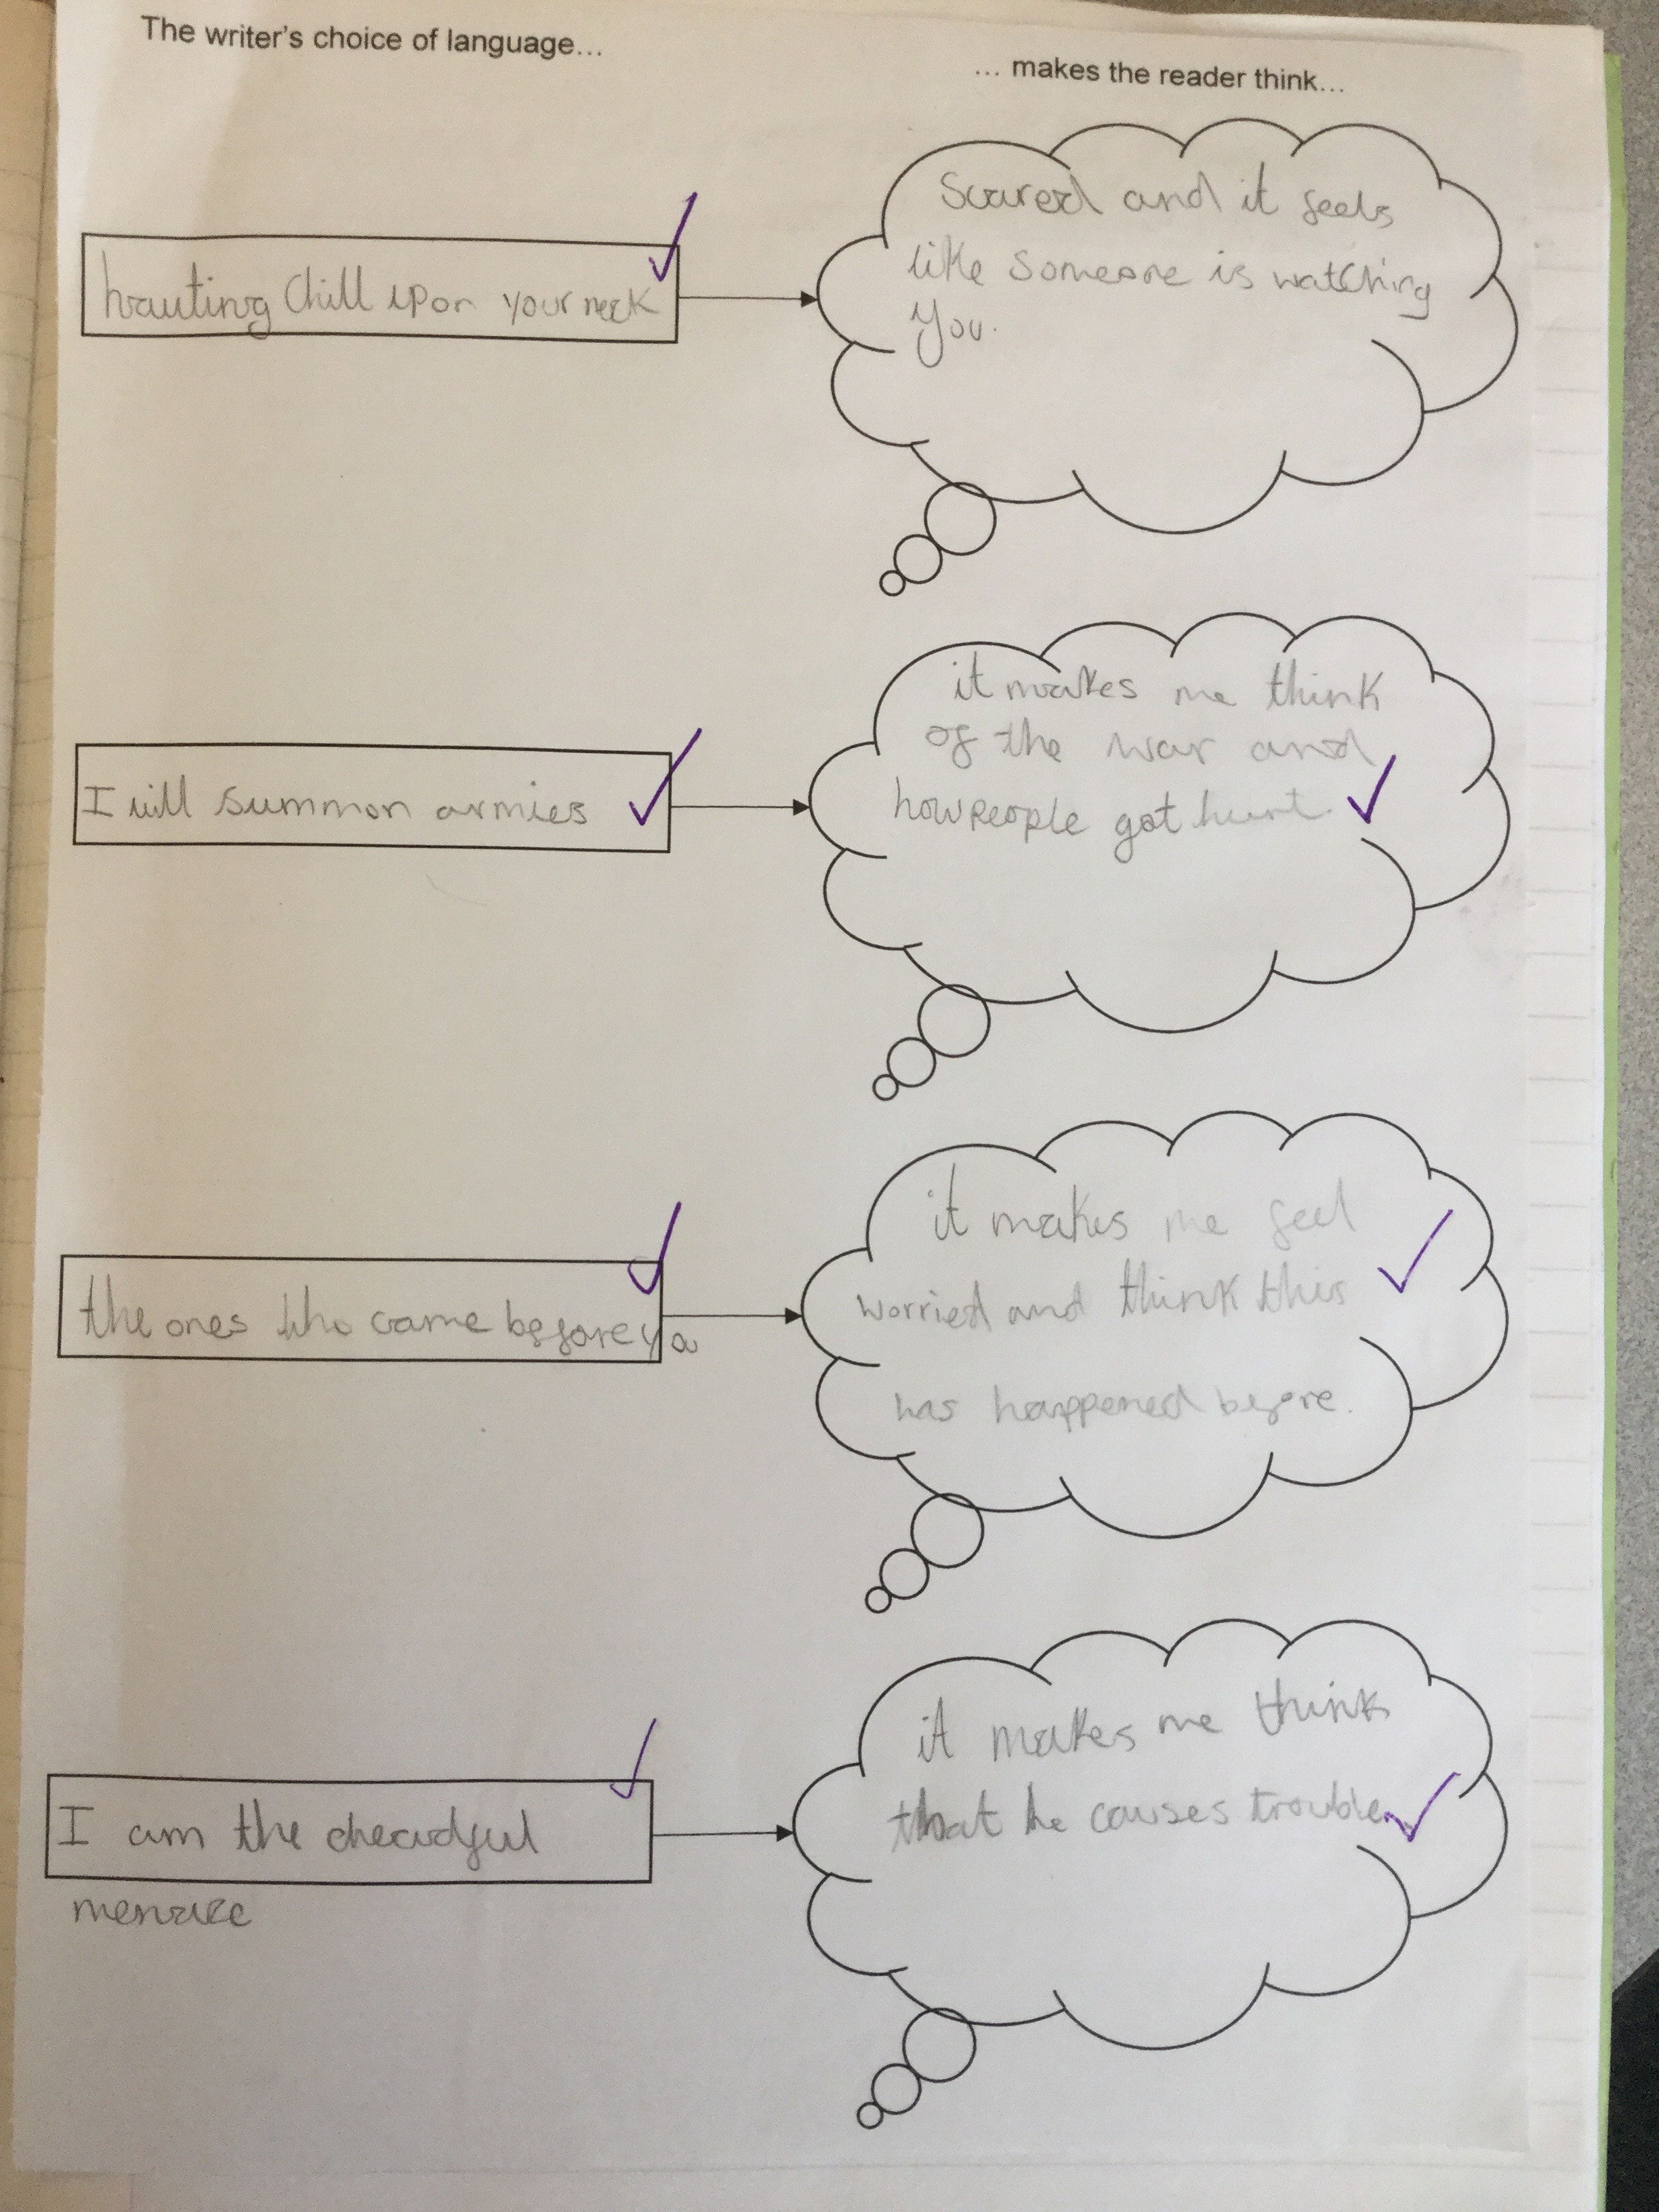 The writer's choice of language...
... makes the reader think...
hauting Chill upon your neck
Scared and it feels
like someone is watching
you.
I will summon armies
it makes me think
of the war and
how people got hurt.
the ones who came before you
it makes me feel
worried and think this
has happened before.
I am the dreadful
menace
it makes me think
that he causes trouble